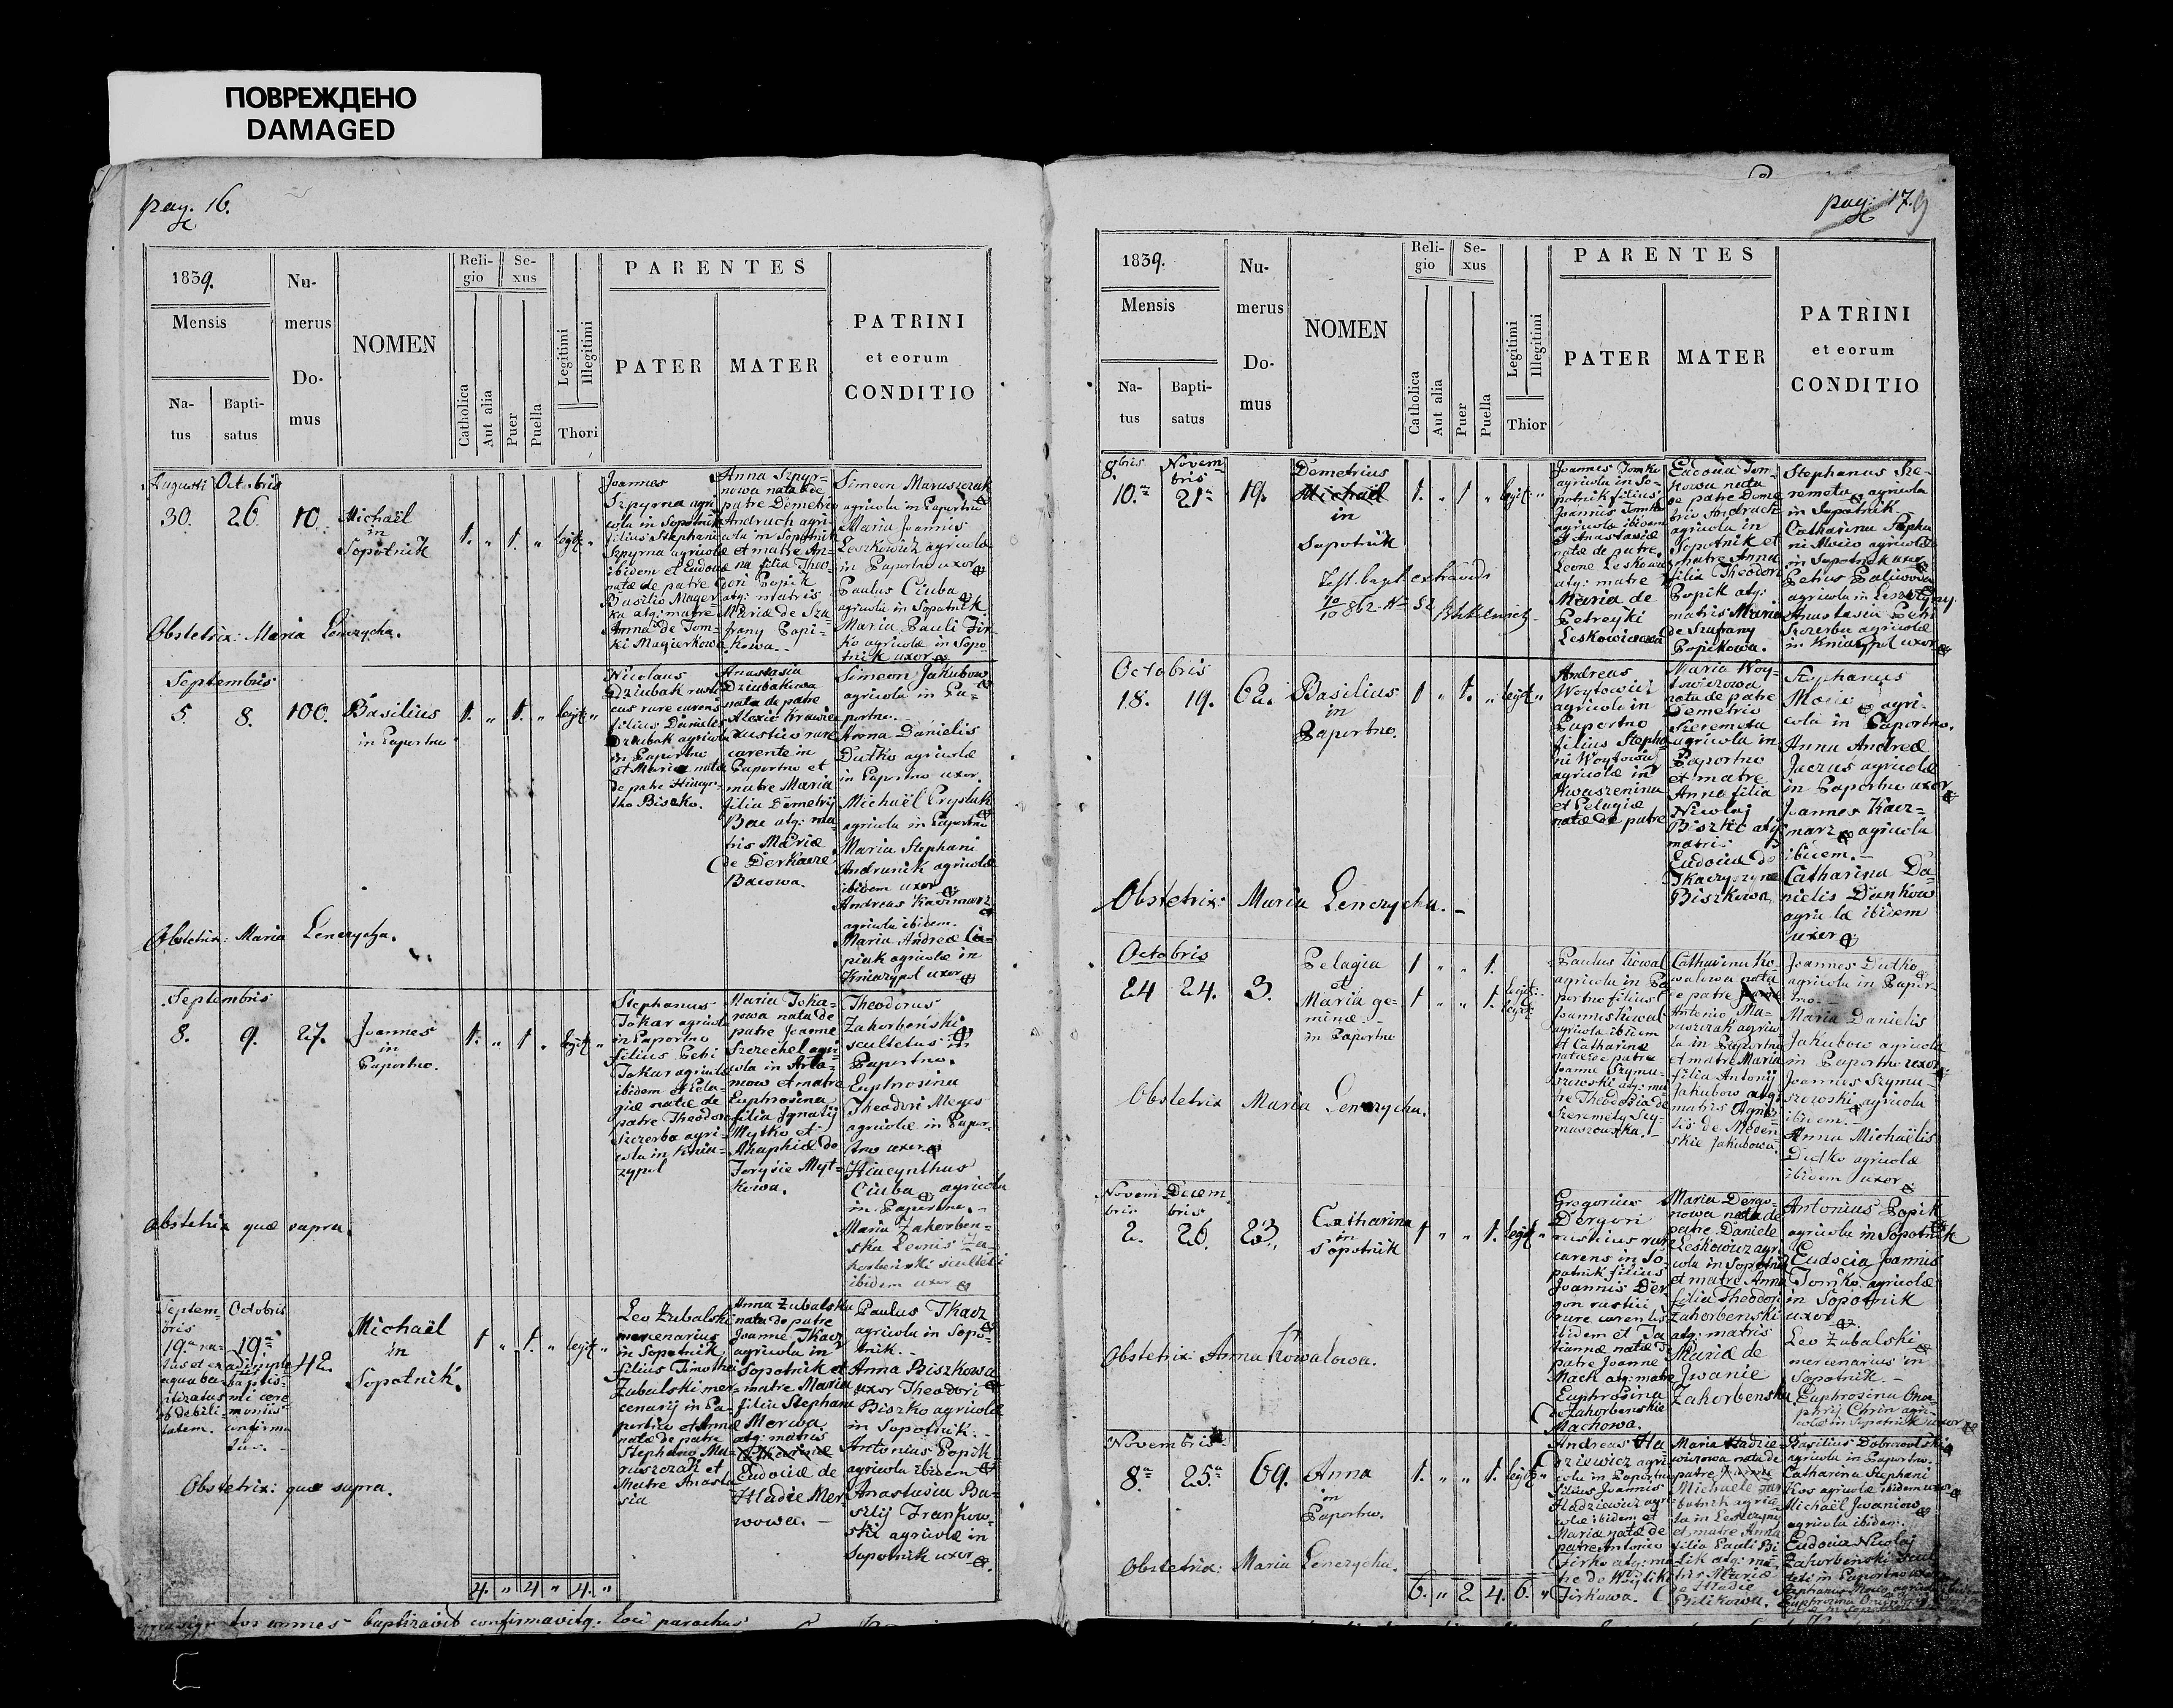 ПОВРЕЖДЕНО
DAMAGED
pag. 16.
1839.
Mensis
Na-
tus
Bapti-
satus
Nu-
merus
Do-
mus
NOMEN
Reli-
gio
Catholica
Aut alia
Se-
xus
Puer
Puella
Legitimi
Illegitimi
Thori
PARENTES
PATER
MATER
PATRINI
et eorum
CONDITIO
Augusti Octobris
30. 26 10 Michaël
in
Sopotnik
1. " 1. " legit. "
Joannes
Szpyrna agri
cola in Sopotnik
filius Stephani
Szpyrna agricolæ
ibidem et Eudociæ
natæ de patre
Basilio Magier
ka atq: matre
Anna de Tom-
ki Magierkowa
Anna Szpyr-
nowa nata de
patre Demetrio
Andruch agri-
cola in Sopotnik
et matre An-
na filia Theo-
dori Popik
atq: matris
Mariæ de Sza
frany Popi-
kowa.
Simeon Maruszczak
agricola in Paportno
Maria Joannis
Leszkowich agricolæ
in Paportno uxor
Paulus Ciuba
agricola in Sopotnik
Maria Pauli Fir-
ko agricolæ in Sopo
tnik uxor
Obstetrix: Maria Lenczycha.
Septembris
5. 8. 100. Basilius
in Paportno
1. " 1. " legit. "
Nicolaus
Dziubak rusti
cus rure carens
filius Danielis
Dziubak agricolæ
in Paportno
et Mariæ natæ
de patre Hiacyn-
tho Biszko.
Anastasia
Dziubakowa
nata de patre
Alexio
rustico rure
carente in
Paportno et
matre Maria
filia Demetrij
Bac atq: ma
tris Mariæ
de Derkacze
Bacowa.
Simeon Jakubow
agricola in Pa-
portno.
Anna Danielis
Dutko agricolæ
in Paportno uxor.
Michaël Prystak
agricola in Paportno
Maria Stephani
Andrunik agricolæ
ibidem uxor
Andreas Kaczmarz
agricola ibidem.
Maria Andreæ Cza-
piuk agricolæ in
Kniazypol uxor
Obstetrix: Maria Lenczycha.
Septembris
8. 9. 27. Joannes
in
Paportno.
1. " 1 " legit. "
Stephanus
Tokar agricola
in Paportno
filius Petri
Tokar agricolæ
ibidem et Pela-
giæ natæ de
patre Theodoro
Szczerba agri-
cola in Knia-
zypol
Maria Toka-
rowa nata de
patre Joanne
Szezechel agri-
cola in Arta-
mow et matre
Euphrosina
filia Ignatij
Mytko et
Agaphiæ de
Jorysie Myt-
kowa.
Theodorus
Zahorbeński
scultetus in
Paportno.
Euphrosina
Theodori Mcys
agricolæ in Papor-
tno uxor
Hiacynthus
Ciuba agricola
in Paportno.
Maria Zahorben-
ska Leonis Za-
horbenski sculteti
ibidem uxor
Obstetrix quæ supra.
Septem-
bris
19. na-
tus et ex
aqua ba-
ptizatus
ob debili-
tatem.
Octobris
19.
adimple
tus bapti-
smi cere
moniis
confirma
tus.
42. Michaël
in
Sopotnik.
1 " 1. " legit. "
Leo Zubalski
mercenarius
in Sopotnik
filius Timothei
Zubalski mer-
cenarij in Pa-
portno et Annæ
natæ de patre
Stephano Ma-
ruszczak et
Matre Anasta
sia
Anna Zubalska
nata de patre
Joanne Tkacz
agricola in
Sopotnik et
matre Maria
filia Stephani
Merwa
atq: matris
Eudociæ de
Hladie Mer-
wowa.
Paulus Tkacz
agricola in Sopo-
tnik.
Anna Biszkowa
uxor Theodori
Biszko agricolæ
in Sopotnik.
Antonius Popik
agricola ibidem
Anastasia Ba-
silij Frankow-
ski agricolæ in
Sopotnik uxor
Obstetrix: quæ supra.
4. " 4 " 4. "
hos omnes baptizavit confirmavitq: loci parochus
pag: 17.
9
1839.
Mensis
Na-
tus
Bapti-
satus
Nu-
merus
Do-
mus
NOMEN
Reli-
gio
Catholica
Aut alia
Se-
xus
Puer
Puella
Legitimi
Illegitimi
Thior
PARENTES
PATER
MATER
PATRINI
et eorum
CONDITIO
8bris
10.
Novem
bris
21
19. Demetrius
Michaël
in
Sopotnik
1. " 1 " legit. "
Test. bapt. extradidi
Joannes Tomko
agricola in So-
potnik filius
Joannis Tomko
agricolæ ibidem
et Anastasiæ
natæ de patre
Leone Leskowicz
atq: matre
Maria de
Petreyki
Leskowiczowa
Eudocia Tom-
kowa nata
de patre Deme
trio Andruch
agricola in
Sopotnik et
matre Anna
filia Theodori
Popik atq:
matris Maria
de Szafrany
Popikowa.
Stephanus Sze-
remeta agricola
in Sopotnik.
Catharina Stepha
ni Macio agricolæ
in Sopotnik uxor
Petrus Paliwoda
agricola in Leszczyny
Anastasia Petri
Szczerba agricolæ
in Kniazypol uxor
Octobris
18. 19. 62. Basilius
in
Paportno.
1 " 1. " legit. "
Andreas
Woytowicz
agricola in
Paportno
filius Stepha
ni Woytowicz
agricolæ in
Kwaszenina
et Pelagiæ
natæ de patre
Maria Woy-
towiczowa
nata de patre
Demetrio
Szeremeta
agricola in
Paportno
et matre
Anna filia
Nicolaj
Biszko atq:
matris
Eudocia de
Tkaczyszyn
Biszkowa
Stephanus
Macio agri-
cola in Paportno.
Anna Andreæ
Jaczus agricolæ
in Paportno uxor
Joannes Kacz-
marz agricola
ibidem.
Catharina Da-
nielis Dankow
agricola ibidem
uxor
Obstetrix: Maria Lenczycha.
Octobris
24 24. 3. Pelagia
et
Maria ge-
minæ
in Paportno
1 " " 1.
1. " " 1.
legit.
legit.
Paulus Kowal
agricola in Pa
portno filius
Joannis Kowal
agricolæ ibidem
et Catharinæ
natæ de patre
Joanne Szymu-
szowski atq: ma
tre Theodosia de
Szeremety Szy-
muszowska.
Catharina Ko-
walowa nata
de patre
Antonio Ma-
ruszczak agrico
la in Paportno
et matre Maria
filia Antonij
Jakubow atq:
matris Agne-
tis de
Jakubowa.
Joannes Dutko
agricola in Papor-
tno.
Maria Danielis
Jakubow agricolæ
in Paportno uxor
Joannes Szymu-
szowski agricola
ibidem.
Anna Michaëlis
Dutko agricolæ
ibidem uxor
Obstetrix Maria Lenczycha.
Novem
bris
2.
Decem
bris
26.
23. Catharina
in
Sopotnik
1 " " 1. legit. "
Gregorius
Dergon
rusticus rure
carens in So
potnik filius
Joannis Der
gon rustici
rure carentis
ibidem et Ta
tiannæ natæ de
patre Joanne
Mach atq: matre
Euphrosina
de Zahorbenskie
Machowa.
Maria Dergo-
nowa nata de
patre Daniele
Leskowicz agri
cola in Sopotnik
et matre Anna
filia Theodori
Zahorbenski
atq: matris
Mariæ de
Iwanie
Zahorbenska
Antonius Popik
agricola in Sopotnik
Eudocia Joannis
Tomko agricolæ
in Sopotnik
uxor
Leo Zubalski
mercenarius in
Sopotnik.
Euphrosina Onu
phrij Chrin agri-
colæ in Sopotnik uxor
Obstetrix: Anna Kowalowa.
Novembris
8. 25. 69. Anna
in
Paportno.
1. " " 1. legit. "
Andreas Ha
dziewicz agri
cola in Paportno
filius Joannis
Hadziewicz agri-
colæ ibidem et
Maria natæ de
patre Antonio
Firko atq: ma
tre de Woytiki
Firkowa.
Maria Hadzie-
wiczowa nata de
patre
Michaele
agrico
la in Leszczyny
et matre Anna
filia Pauli Bi
lik atq: ma-
tris Mariæ
de Hladie
Bilikowa.
Basilius Dobrzanski
agricola in Paportno.
Catharina Stephani
Kos agricolæ ibidem uxor
Michaël Iwaniow
agricola ibidem.
Eudocia Nicolaj
Zahorbenski Scul
teti in Paportno uxor
Stephanus Macio agricola ibidem
Euphrosina
Obstetrix: Maria Lenczycha.
6. " 2 4. 6. "